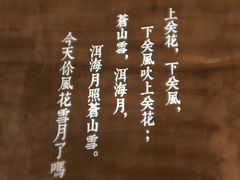 上矣花，下矣風，
下矣風吹上矣花；
蒼山雪，洱海月，
洱海月照蒼山雪。
今天你風花雪月了嗎